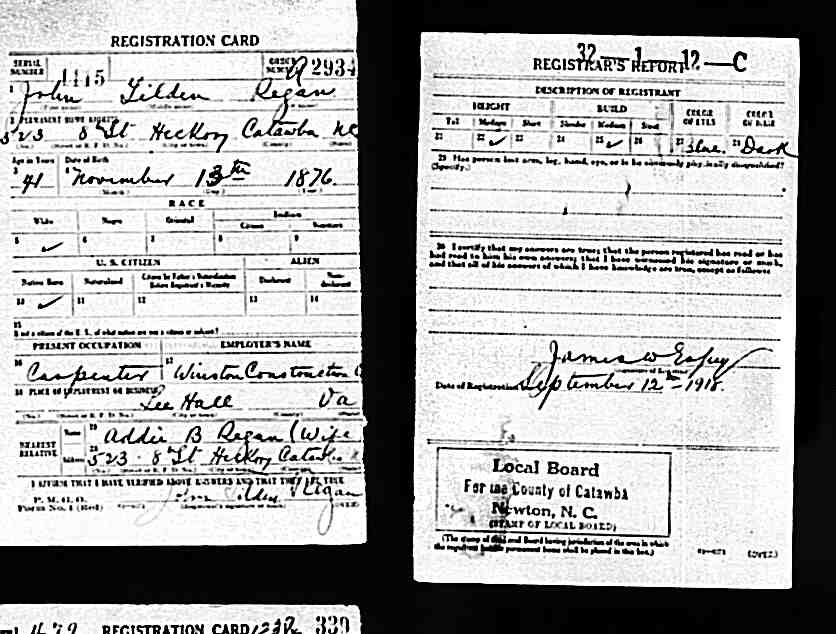 REGISTRATION CARD
SERIAL NUMBER 1115 ORDER NUMBER A 2934
1 John Tilden Regan
2 PERMANENT HOME ADDRESS
523 8th St Hickory Catawba NC
Age in Years Date of Birth
3 41 4 November 13th 1876.
RACE
White Negro Oriental Indian
Citizen Noncitizen
5 ✓ 6 7 8 9
U. S. CITIZEN ALIEN
Native Born Naturalized Citizen by Father's Naturalization Before Registrant's Majority Declarant Non-declarant
10 ✓ 11 12 13 14
15
If not a citizen of the U. S., of what nation are you a citizen or subject?
PRESENT OCCUPATION EMPLOYER'S NAME
16 Carpenter 17 Winston Construction C
18 PLACE OF EMPLOYMENT OR BUSINESS
Lee Hall Va
NEAREST RELATIVE Name 19 Addie B Regan (Wife
Address 20 523 8th St Hickory Catawba
I AFFIRM THAT I HAVE VERIFIED ABOVE ANSWERS AND THAT THEY ARE TRUE
P. M. G. O.
Form No. 1 (Red) John Tilden Regan
REGISTRATION CARD 339
32—1—12—C
REGISTRAR'S REPORT
DESCRIPTION OF REGISTRANT
HEIGHT BUILD COLOR OF EYES COLOR OF HAIR
Tall Medium Short Slender Medium Stout
21 22 ✓ 23 24 25 ✓ 26 27 Blue. 28 Dark
29 Has person lost arm, leg, hand, eye, or is he obviously physically disqualified?
(Specify.)
30 I certify that my answers are true; that the person registered has read or has
had read to him his own answers; that I have witnessed his signature or mark,
and that all of his answers of which I have knowledge are true, except as follows:
James W Espey
Date of Registration September 12th 1918.
Local Board
For the County of Catawba
Newton, N. C.
(STAMP OF LOCAL BOARD)
(The stamp of the Local Board having jurisdiction of the area in which
the registrant has his permanent home shall be placed in this box.)
(OVER)